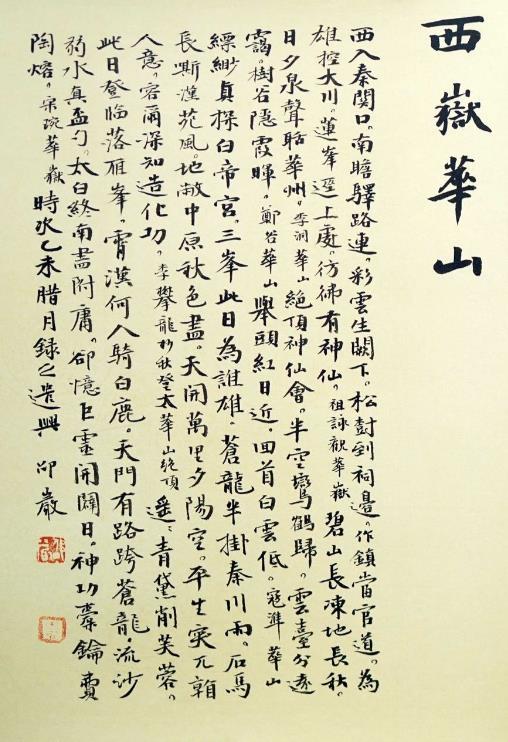 西嶽華山
西入秦關口。南瞻驛路連。彩雲生闕下。松樹到祠邊。作鎮當官道。為
雄控大川。蓮峯逕上處。彷彿有神仙。祖詠觀華嶽 碧山長凍地長秋。
日夕泉聲聒華州。李洞華山 絕頂神仙會。半空鸞鶴歸。雲臺分遠
靄。樹谷隱霞暉。鄭谷華山 舉頭紅日近。回首白雲低。寇準華山
縹緲貞探白帝宮。三峯此日為誰雄。蒼龍半掛秦川雨。石馬
長嘶漢苑風。地敞中原秋色盡。天開萬里夕陽空。平生突兀
人意。容爾深知造化功。李攀龍杪秋登太華山絕頂 遙遙青黛削芙蓉。
此日登臨落雁峯。霄漢何人騎白鹿。天門有路跨蒼龍。流沙
弱水真盃勺。太白終南盡附庸。卻憶巨靈開闢日。神功橐鑰費
陶熔。宋琬華嶽 時次乙未腊月録之遣興 巖